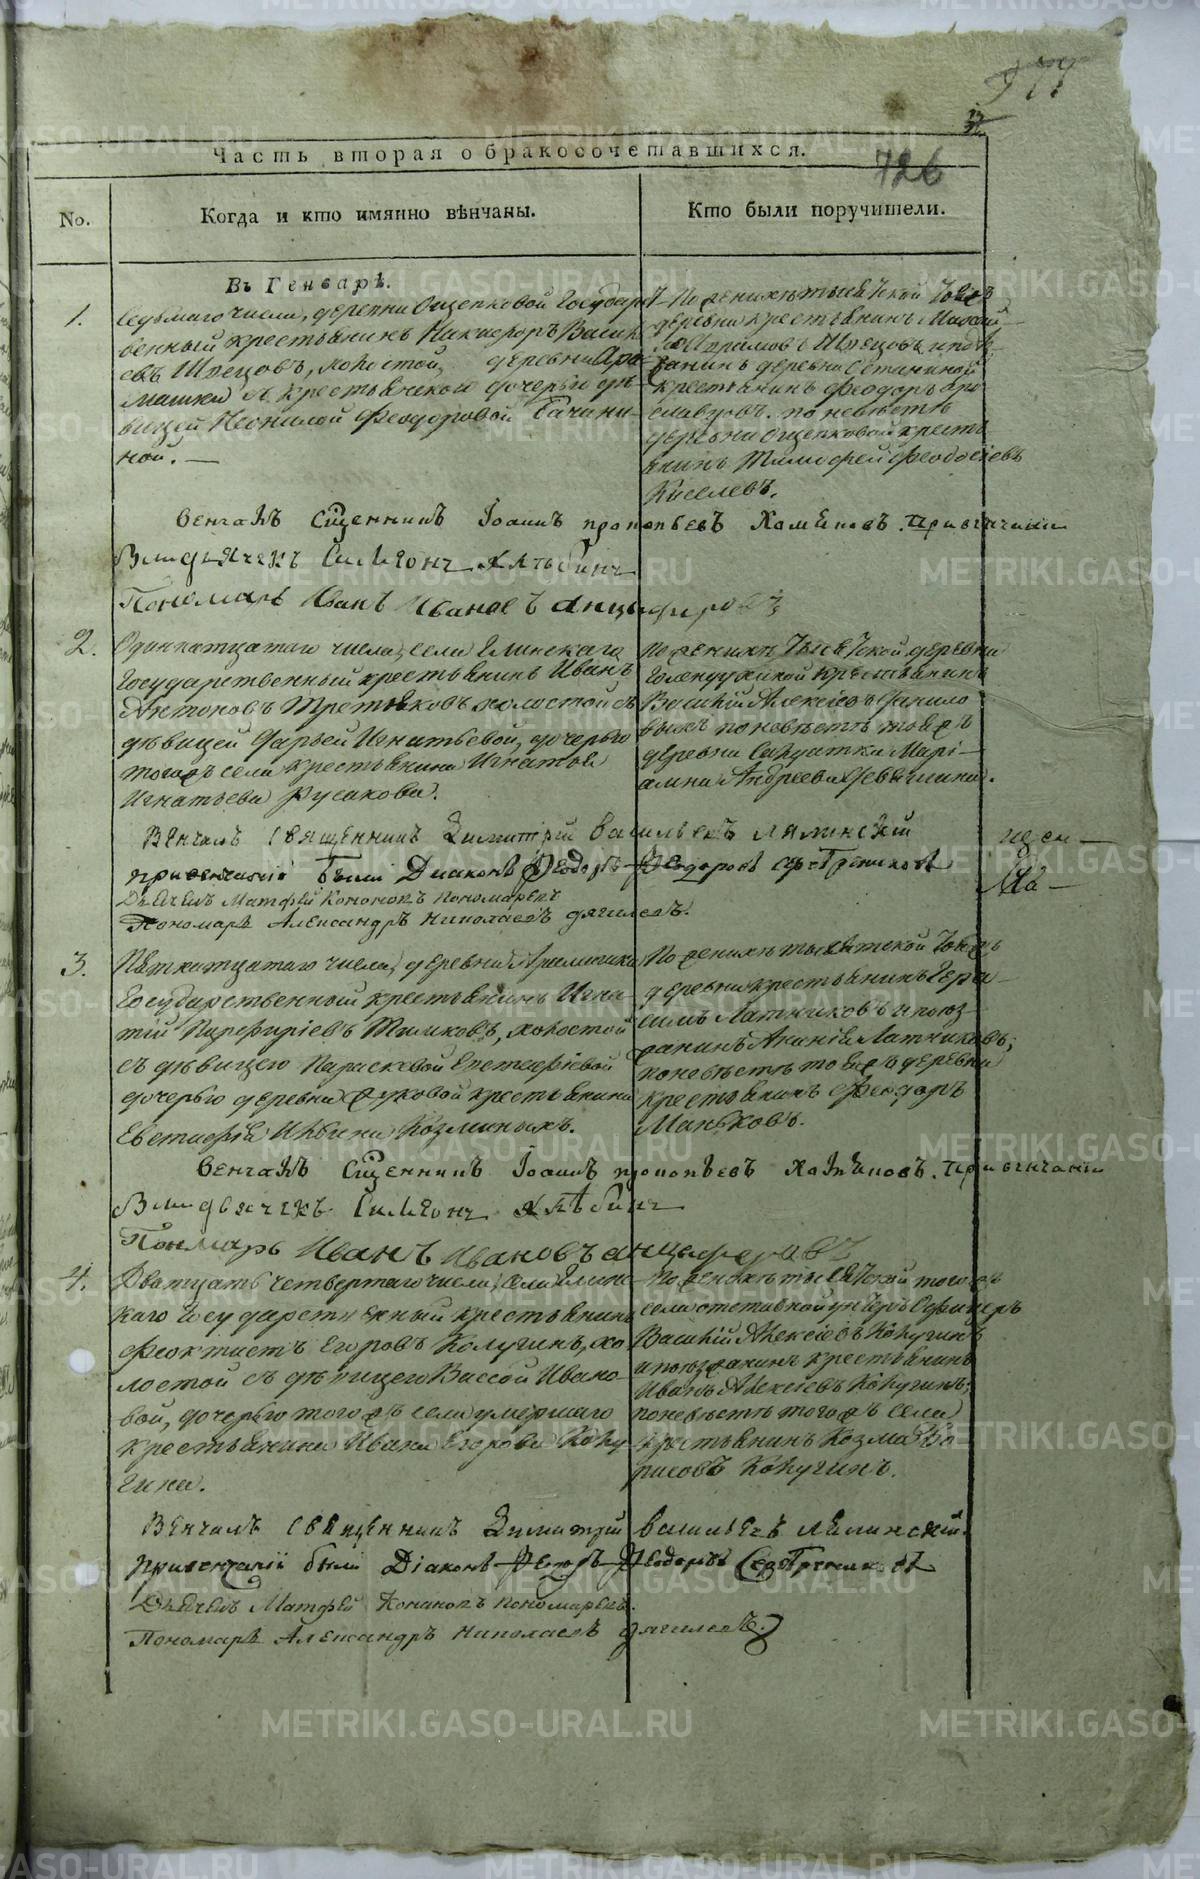 977
Часть вторая о бракосочетавшихся.
726
No.
Когда и кто имянно вѣнчаны.
Кто были поручители.
Въ Генварѣ.
1.
Седьмаго числа, деревни Ощепковой Государст-
венный крестьянинъ Никифоръ Василь-
евъ Швецовъ, холостой, деревни Ара-
машки съ крестьянскою дочерью дѣ-
вицей Неонилой Феодоровой Гачани-
ной. —
По женихѣ тысяцкой тояжъ
деревни крестьянинъ
Абрамовъ Швецовъ и поѣз-
жанинъ деревни
крестьянинъ Феодоръ
по невѣстѣ
деревни Ощепковой кресть-
янинъ Тимофей Феодосіевъ
Киселевъ.
Венчалъ Сщенникъ Іоаннъ Прокопьевъ Хомяковъ. При венчаніи
были дьячекъ Симеонъ Хлѣбинъ
Пономарь Иванъ Ивановъ Анциферовъ
2.
Одиннатцатаго числа, села Глинскаго
Государственный крестьянинъ Иванъ
Антоновъ Третьяковъ холостой съ
дѣвицей Дарьей Игнатьевой, дочерью
тогожъ села крестьянина Игнатья
Игнатьева Русакова.
По женихѣ тысяцкой деревни
Голендухиной крестьянинъ
Василій Алексіевъ Данило
выхъ по невѣстѣ тояжъ
деревни Салдатка Марі-
амна Андреева
Венчалъ священникъ Димитрій Васильевъ Ляпинскій
привенчаніи были Диаконъ Феодоръ Феодоровъ Серебрениковъ
Дьячекъ Матфей Кононовъ Пономаревъ
Пономарь Александръ Николаевъ Дягилевъ.
3.
Пятнатцатаго числа, деревни Арамашки
Государственный крестьянинъ Игна-
тій Парфиріевъ Тиликовъ, холостой
съ дѣвицею Параскевой Евстафіевой
дочерью деревни Жуковой крестьянина
Евстафія Ильина Козминыхъ.
По женихѣ тысяцкой тояжъ
деревни крестьянинъ Гера-
симъ Латниковъ и поѣз-
жанинъ Ананій Латниковъ;
по невѣстѣ тояжъ деревни
крестьянинъ Феодоръ
Маньковъ.
Венчалъ Сщенникъ Іоаннъ Прокопьевъ Хомяковъ. При венчаніи
были дьячекъ Симеонъ Хлѣбинъ
Пономарь Иванъ Ивановъ Анциферовъ
4.
Дватцать четвертаго числа, села Глинс-
каго Государственный крестьянинъ
Феоктистъ Егоровъ Колугинъ, хо-
лостой съ дѣвицею Вассой Ивано-
вой, дочерью тогожъ села умершаго
крестьянина Ивана Егорова Колу-
гина.
По женихѣ тысяцкой тогожъ
села отставной унтеръ Офицеръ
Василій Алексіевъ Колугинъ
и поѣзжанинъ крестьянинъ
Иванъ Алексіевъ Колугинъ;
по невѣстѣ тогожъ села
крестьянинъ Козма Бо-
рисовъ Колугинъ.
Венчалъ священникъ Димитрій Васильевъ Ляпинскій.
привенчаніи были Діаконъ Феодоръ Феодоровъ Серебрениковъ
Дьячекъ Матфей Кононовъ Пономаревъ.
Пономарь Александръ Николаевъ Дягилевъ.
METRIKI.GASO-URAL.RU